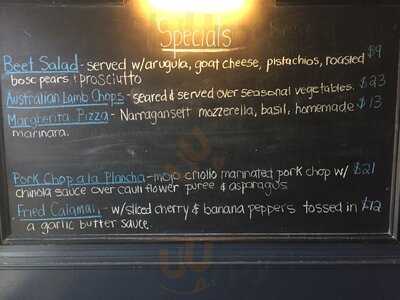 Specials
Beet Salad - served w/arugula, goat cheese, pistachios, roasted $9
bosc pears & prosciutto
Australian Lamb Chops - seared & served over seasonal vegetables. $23
Margherita Pizza - Narragansett mozzerella, basil, homemade $13
marinara.
Pork Chop a la Plancha - mojo criollo marinated pork chop w/ $21
chinola sauce over cauliflower puree & asparagus
Fried Calamari - w/sliced cherry & banana peppers tossed in $12
a garlic butter sauce.